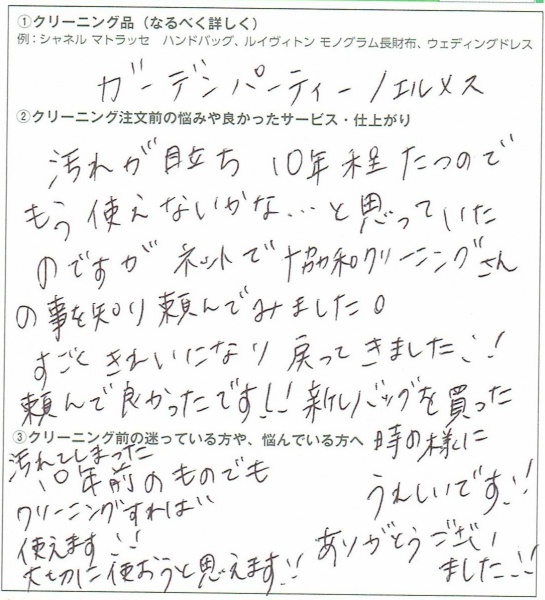 ①クリーニング品（なるべく詳しく）
例：シャネル マトラッセ　ハンドバッグ、ルイヴィトン モノグラム長財布、ウェディングドレス
ガーデンパーティー／エルメス
②クリーニング注文前の悩みや良かったサービス・仕上がり
汚れが目立ち 10年程たつので
もう使えないかな…と思っていた
のですが ネットで協和クリーニングさん
の事を知り頼んでみました。
すごくきれいになり戻ってきました!!
頼んで良かったです!! 新しいバッグを買った
時の様に
うれしいです!!
ありがとうござい
ました!!
③クリーニング前の迷っている方や、悩んでいる方へ
汚れてしまった
10年前のものでも
クリーニングすれば
使えます!!
大切に使おうと思えます!!